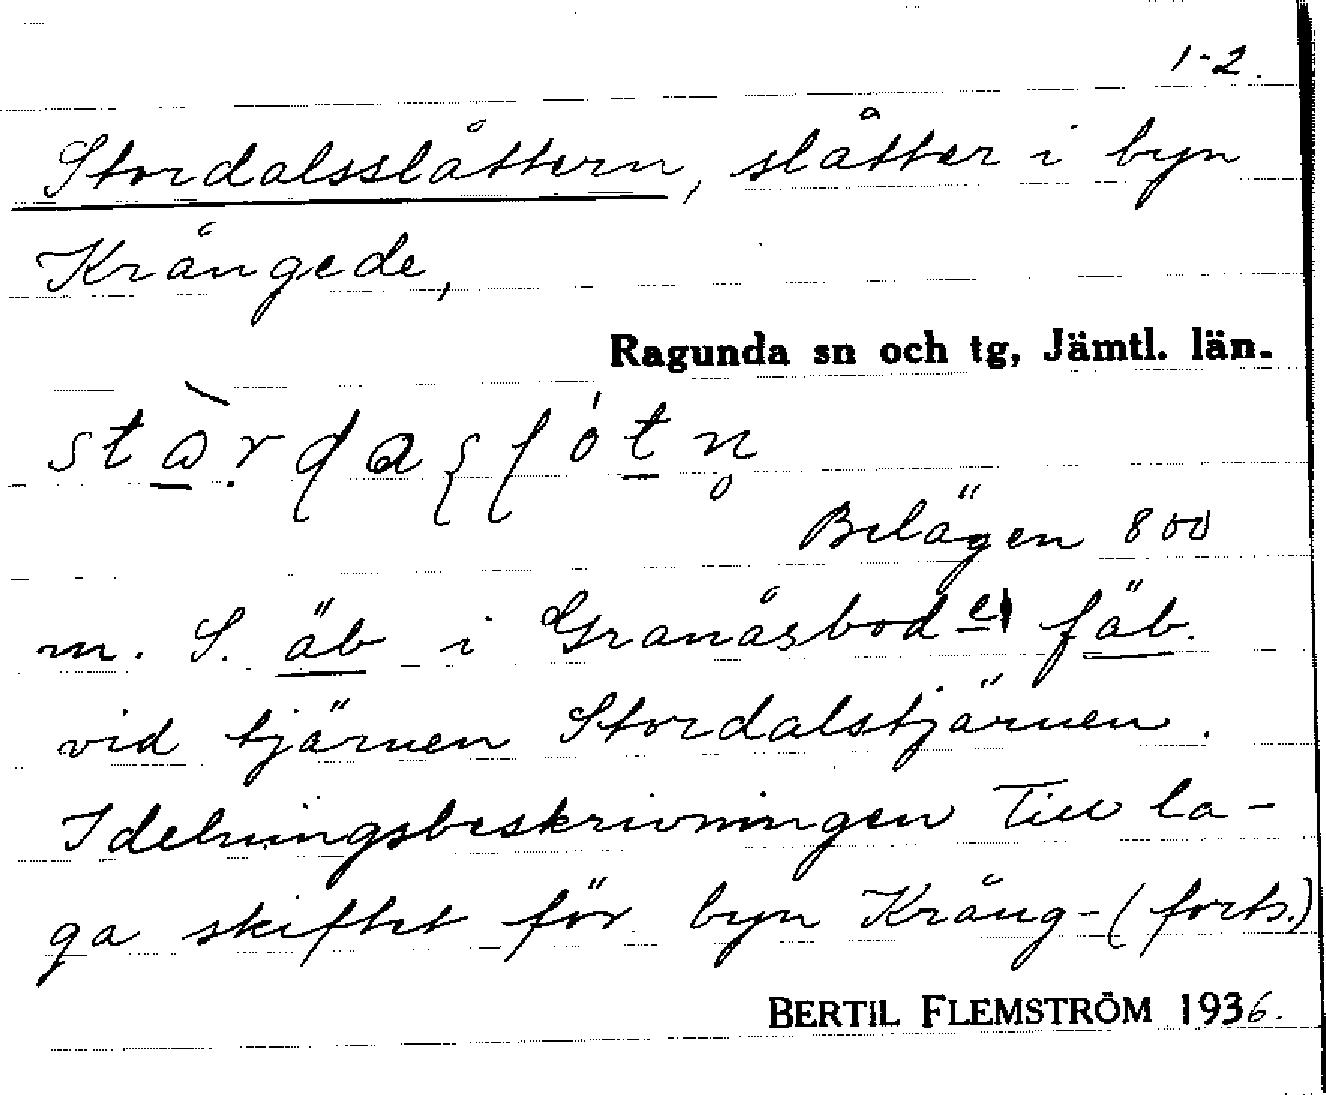 1-2.
Stordalsslåttern, slåtter i byn
Krångede,
Ragunda sn och tg, Jämtl. län.
Belägen 800
m. S. äb i Granåsbodel fäb.
vid tjärnen Stordalstjärnen.
I delningsbeskrivningen till la-
ga skiftet för byn Kräng- (forts.)
BERTIL FLEMSTRÖM 1936.